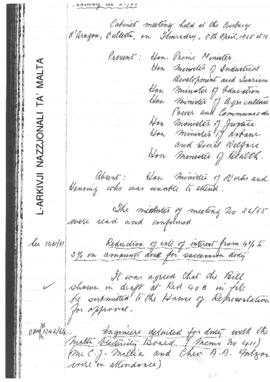 L-ARKIVJI NAZZJONALI TA' MALTA
Meeting No
Cabinet meeting held at the Auberge
d'Aragon, Valletta, on Thursday, 8th April, 1965 at
Present: Hon. Prime Minister
Hon. Minister of Industrial
Development and Tourism
Hon. Minister of Education
Hon. Minister of Agriculture
Power and Communications
Hon. Minister of Justice
Hon. Minister of Labour
and Social Welfare
Hon. Minister of Health.
Absent: Hon. Minister of Works and
Housing who was unable to attend.
The minutes of meeting No 26/65
were read and confirmed
Reduction of rate of interest from 4% to
2% on amounts due for succession duty
It was agreed that the Bill
shown in draft at Red 40B in file
be submitted to the House of Representatives
for approval.
Engineers detailed for duty with the
Malta Electricity Board. (Memo No 411)
(Mr C.J. Mallia and Chev. A.A.
were in attendance)